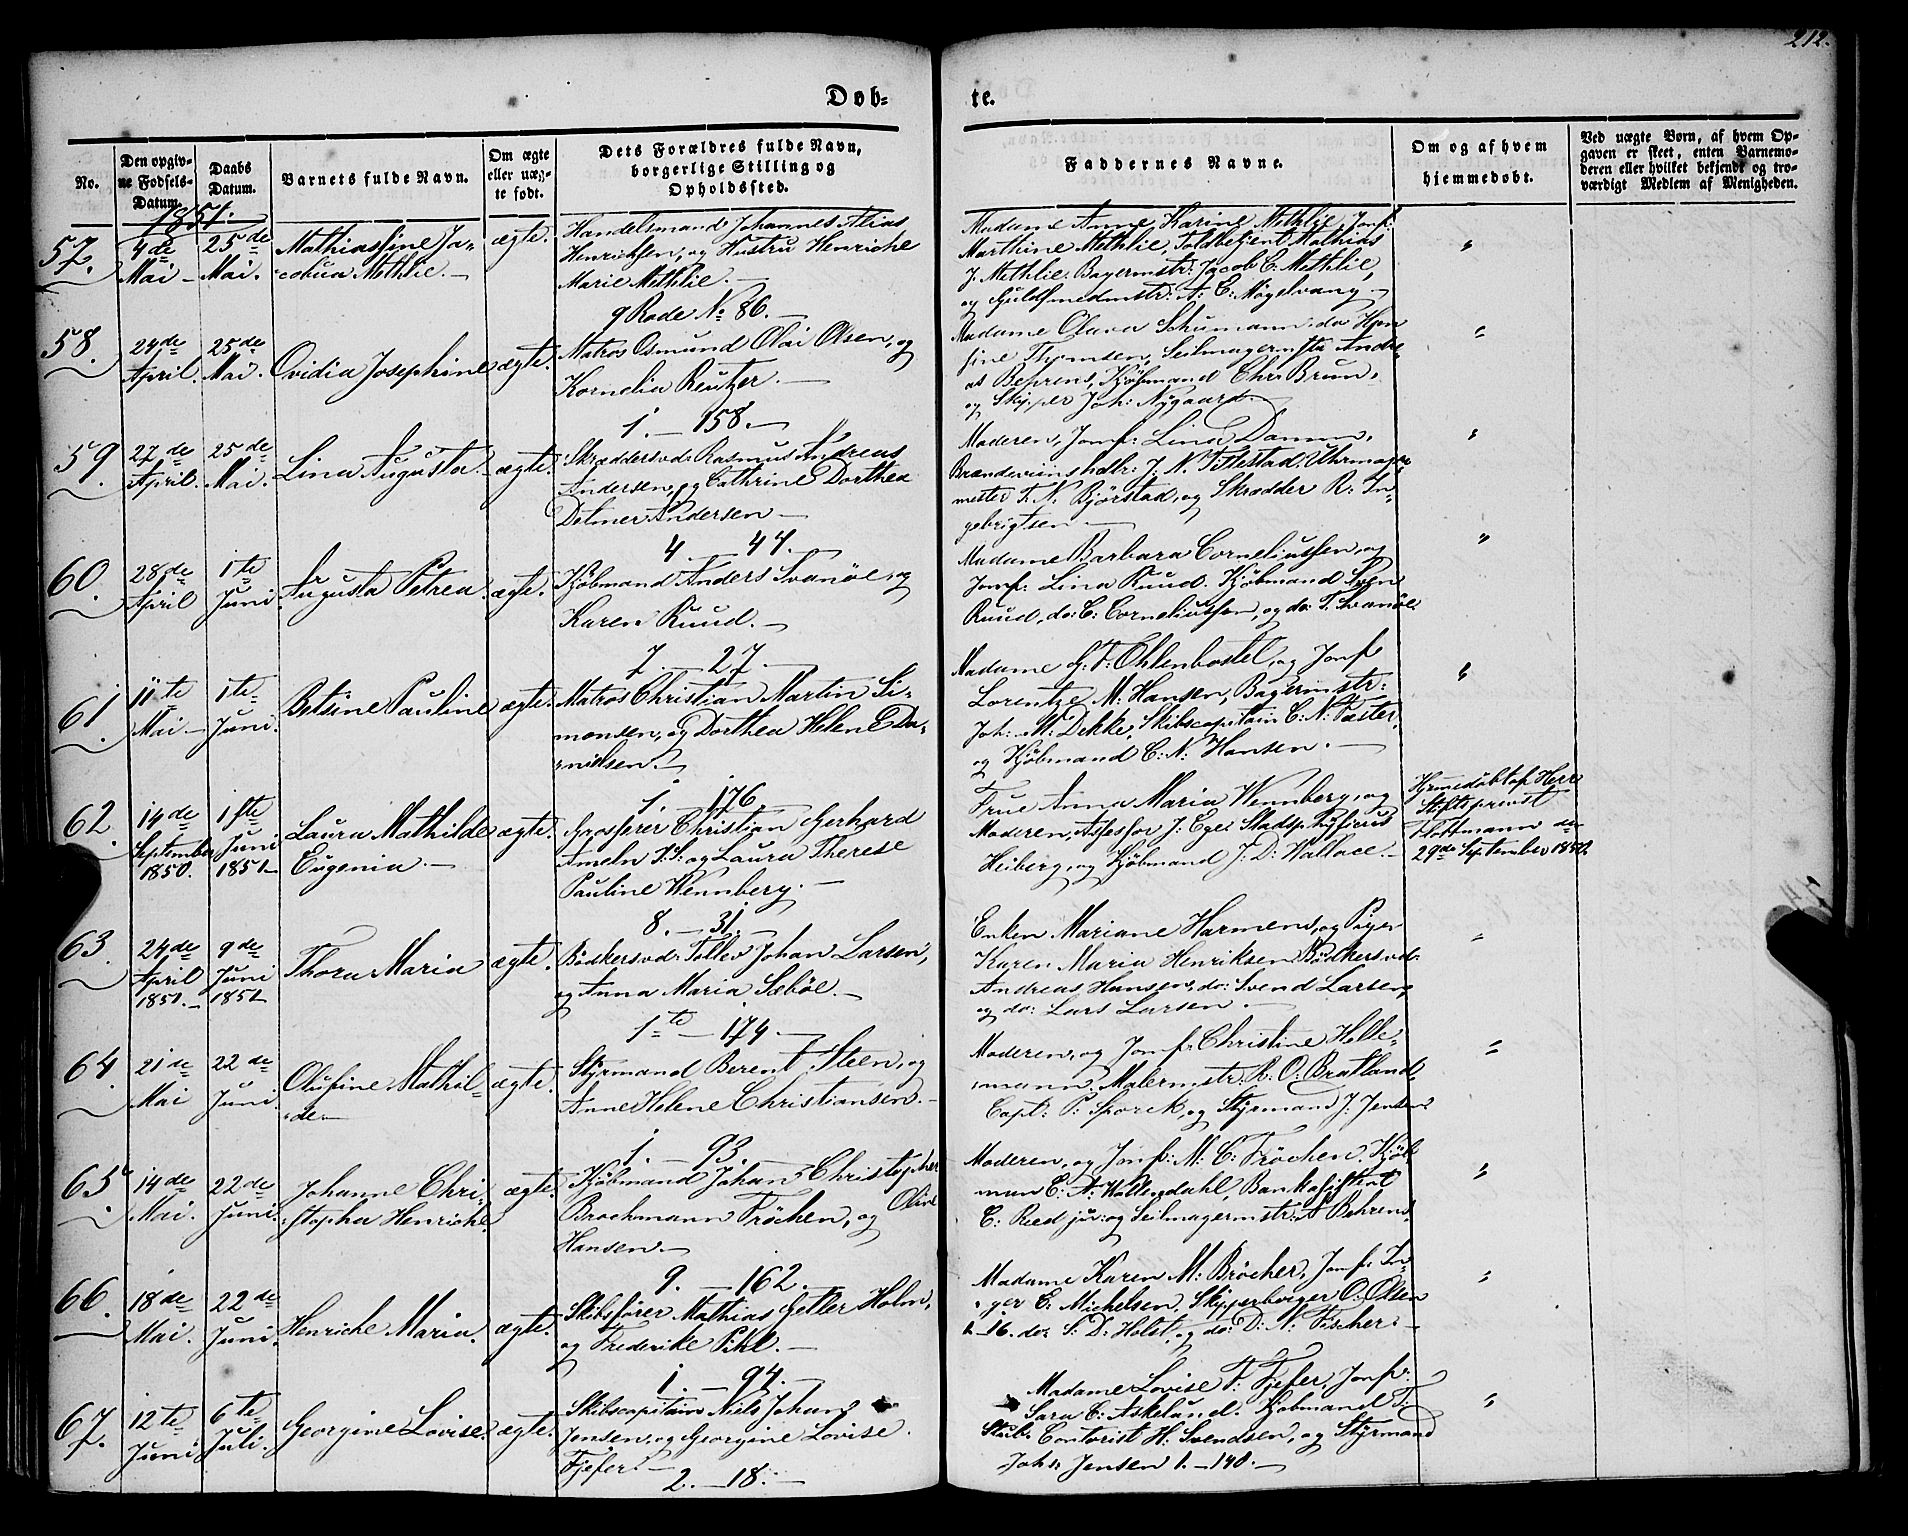 212.
Døb-
te.
No.
Den opgiv-
ne Fødsels-
Datum.
Daabs
Datum.
Barnets fulde Navn.
Om ægte
eller uæg-
te født.
Dets Forældres fulde Navn,
borgerlige Stilling og
Opholdssted.
Faddernes Navne.
Om og af hvem
hjemmedøbt.
Ved uægte Born, af hvem Op-
gaven er skeet, enten Barnemo-
deren eller hvilket bekjendt og tro-
værdigt Medlem af Menigheden.
1851.
57.
4de
Mai
25de
Mai.
Mathiassine Ja-
cobina Methlie.
ægte.
Handelsmand Johannes Alias
Henriksen, og Hustru Henriche
Marie Methlie.
9 Rode No 86.
Madame Anne Karine Methlie, Jomf:
Marthine Methlie, Toldbetjent Mathias
J. Methlie, Bagermstr: Jacob C. Methlie,
og Guldsmedmstr: A: C: Møgelvang
"
58.
24de
April.
25de
Mai.
Ovidia Josephine
ægte.
Matros Osmund Olai Olsen, og
Kornelia Reutzer.
1. — 158.
Madame Olava Schumann, do Hen
sine Thomsen, Seilmagermstr Andre-
as Behrens, Kjøbmand Chr: Brun,
og Skipper Joh: Nygaard.
"
59.
27de
April.
25de
Mai.
Lina Augusta.
ægte.
Skræddersvd: Rasmus Andreas
Andersen, og Cathrine Dorthea
Detmer Andersen
4. — 47.
Moderen, Jomf: Lina Damm,
Brændeviinshdlr: J: N. Tillestad, Uhrmager
mester T. N: Bjørstad, og Skrædder R: In-
gebrigtsen
"
60.
28de
April
1te
Juni
Augusta Petrea.
ægte.
Kjøbmand Anders Svanøe, og
Karen Ruud.
7. — 27.
Madame Barbara Corneliussen, og
Jomf: Lina Ruud. Kjøbmand Sven
Ruud, do: C: Corneliussen, og do: T. Svanøe
"
61.
11te
Mai
1te
Juni.
Betsine Pauline
ægte.
Matros Christian Martin Si-
monsen, og Dorthea Helene Da-
nielsen.
1. 176.
Madame G: T: Ohlenbostel, og Jomf
Lorentze M: Hansen, Bagermstr:
Joh: M: Dekke, Skibscapitain C: N: Faster,
og Kjøbmand C: N: Hansen.
"
62.
14de
September
1850.
1ste
Juni
1851
Laura Mathilde
Eugenia.
ægte.
Grosserer Christian Gerhard
Ameln J: S: og Laura Therese
Pauline Wennberg.
8. — 31.
Frue Anna Maria Wennberg, og
Moderen, Assessor J: Ege: Stadsphysicus
Heiberg, og Kjøbmand J: D: Wallace.
Hjemmedøbt af Herr
Stiftsprovst
den
29de September 1850.
63.
24de
April
1851.
9de
Juni
1851
Thora Maria
ægte.
Bødkersvd: Tollev Johan Larsen,
og Anna Maria Sæbøe.
1te — 174.
Enken Mariane Harmens, og Pige
Karen Maria Henriksen, Bødkersvd:
Andreas Hansen, do: Svend Larsen,
og do: Lars Larsen.
"
64.
21de
Mai
22de
Juni.
Olufine Mathil-
de
ægte.
Styrmand Berent Steen, og
Anne Helene Christiansen.
1. — 93.
Moderen, og Jomf: Christine Holte-
mann, Malermstr: R. O: Bratland,
Capt: P: Sporck, og Styrmand J: Jensen
"
65.
14de
Mai.
22de
Juni.
Johanne Chri-
stopha Henriche
ægte.
Kjøbmand Johan Christopher
Brochmann Frøchen, og Oline
Hansen.
9. — 162.
Moderen, og Jomf: M: C: Frøchen, Kjøb
man C: A: Wallendahl, Bankassistent
C: Reed jun: og Seilmagermstr: A Behrens.
"
66.
18de
Mai.
22de
Juni.
Henriche Maria.
ægte.
Skibsfører Mathias Geller Holm,
og Frederike Pihl.
1. — 94.
Madame Karen M: Brøcher, Jomf: In-
ger C: Michelsen, Skipperborger O: Olsen
1.-16. do: S: D: Holst, og do: D: N: Fischer.
"
67.
12te
Juni
6te
Juli.
Georgine Lovise.
ægte.
Skibscapitain Niels Johan
Jensen, og Georgine Lovise
Fjeser.
2. — 18.
Madame Lovise F: Fjeser, Jomf:
Sara C: Askelund. Kjøbmand T:
Contorist H: Svendsen, og Styrmand
Johs Jensen 1. — 140.
"